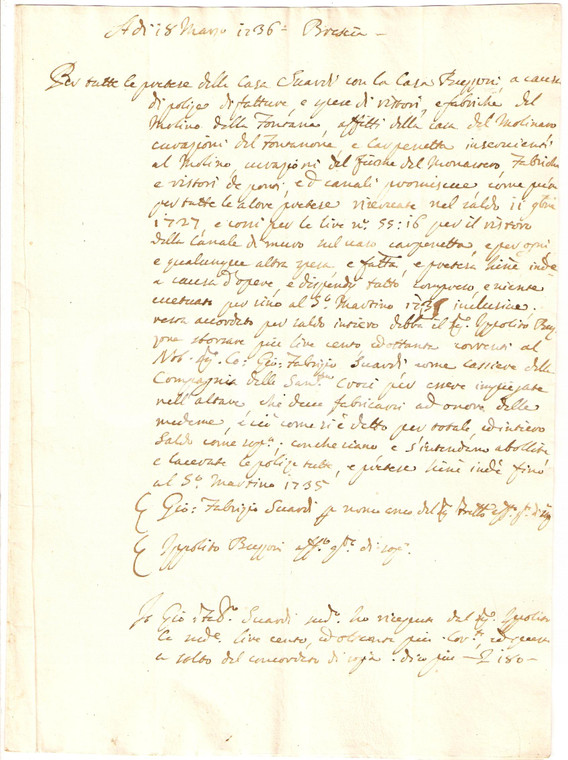 Adi 18 Marzo 1736 = Brescia —
Per tutte le pretese della Casa Suardi con la Casa Buzzoni, a causa
di polize di fatture, e spese di ristori, e fabriche del
Molino della Fontana, affitti della casa del Molinaro
curazioni del Fontanone, e Carpenetta
al Molino curazioni del fiume del Fabriche
e ristori de ponti, e di canali promiscue come pure
per tutte le altre pretese rilevate nel saldo 11
1727, e cossi per le lire n.º 55:16 per il ristoro
della Canale di muro sul vaso carpenetta, e per ogni
e qualunque altra spesa, e fatta, e pretesa hinc inde
a causa d'opere, e dispendij tutto compreso, e niente
eccetuato per sino al S.º Martino 1735 inclusive.
resta accordato per saldo intiero debba il Sig. Ippolito Buz
zone sborsare piu lire cento ed ottanta correnti al
Nob. Sig. Co: Gio: Fabrizio Suardi come cassiere della
Compagnia delle Croci per essere impiegate
nell'altare che deve fabricarsi ad onore delle
medeme, e ciò come si è detto per totale, ed intiero
saldo come sop.ª; con che siano e s'intendano abollite
e lacerate le polize tutte, e pretese hinc inde fino
al S.º Martino 1735
Gio: Fabrizio Suardi
Ippolito Buzzoni aff.º q.to di sop.ª
Io Gio: Fab.º Suardi sud.º ho ricevuto dal Sig. Ippolito
le sud.e lire cento, ed ottanta piu Cor.ti, e
a saldo del concordato di sopra. dico piu — £ 180 —